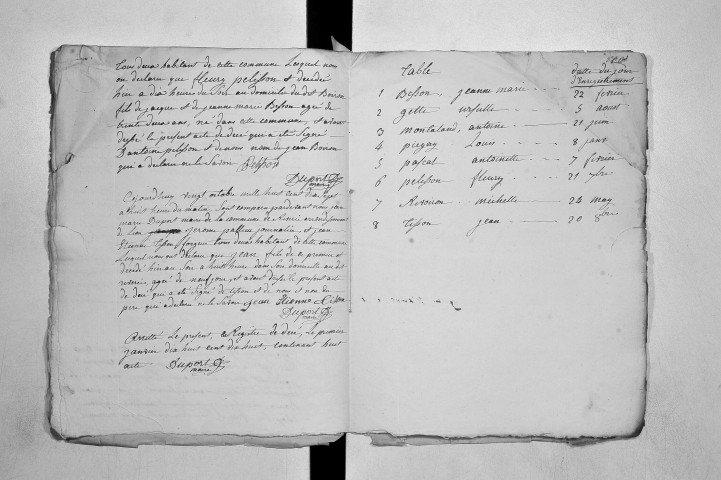 tous deux habitant de cette commune Lesquel non
on declare que fleury pelisson est decedé
hier a dix heures du Soir au domicile du dt Besson
fils de jacque et de jeanne marie Besson agé de
trente deux ans, né dans cette commune, et avons
dressé le present acte de decé qui a eté Signé
D'antoine pelisson et de nous non de jean Besson
qui a declaré ne le Savoir Pelisson
Duport
maire
Cejourdhuy vingt octobre mille huit cent dix sept
a huit heures du matin, Sont comparu pardevant nous jean
marie Duport maire de la commune de arondissement
de Lion jerome journalier, et jean
Etienne tisson forgeur tous deux habitant de cette commune
Lesquel nous ont declaré que jean fils de ce premier est
decedé hier au Soir a huit heure dans Son domicile au dt
agé de neuf jour, et avons dressé le present acte
de decé qui a eté Signé de tisson et de nous et non du
pere qui a declaré ne le Savoir jean Etienne tisson
Duport
maire
Arrêtté Le present Registre de decé, Le premier
janvier dix huit cent dix huit, contenant huit
acte Duport
maire
Table
datte du jour
d'Enregistrement
1 Besson, jeanne marie 22 fevrier
2 gette ursulle 5 aoust
3 montaland, antoine 21 juin
4 piegay Louis 8 janv
5 pascal antoinette 7 fevrier
6 pelisson fleury 21 9bre
7 michelle 24 may
8 tisson jean 20 8bre